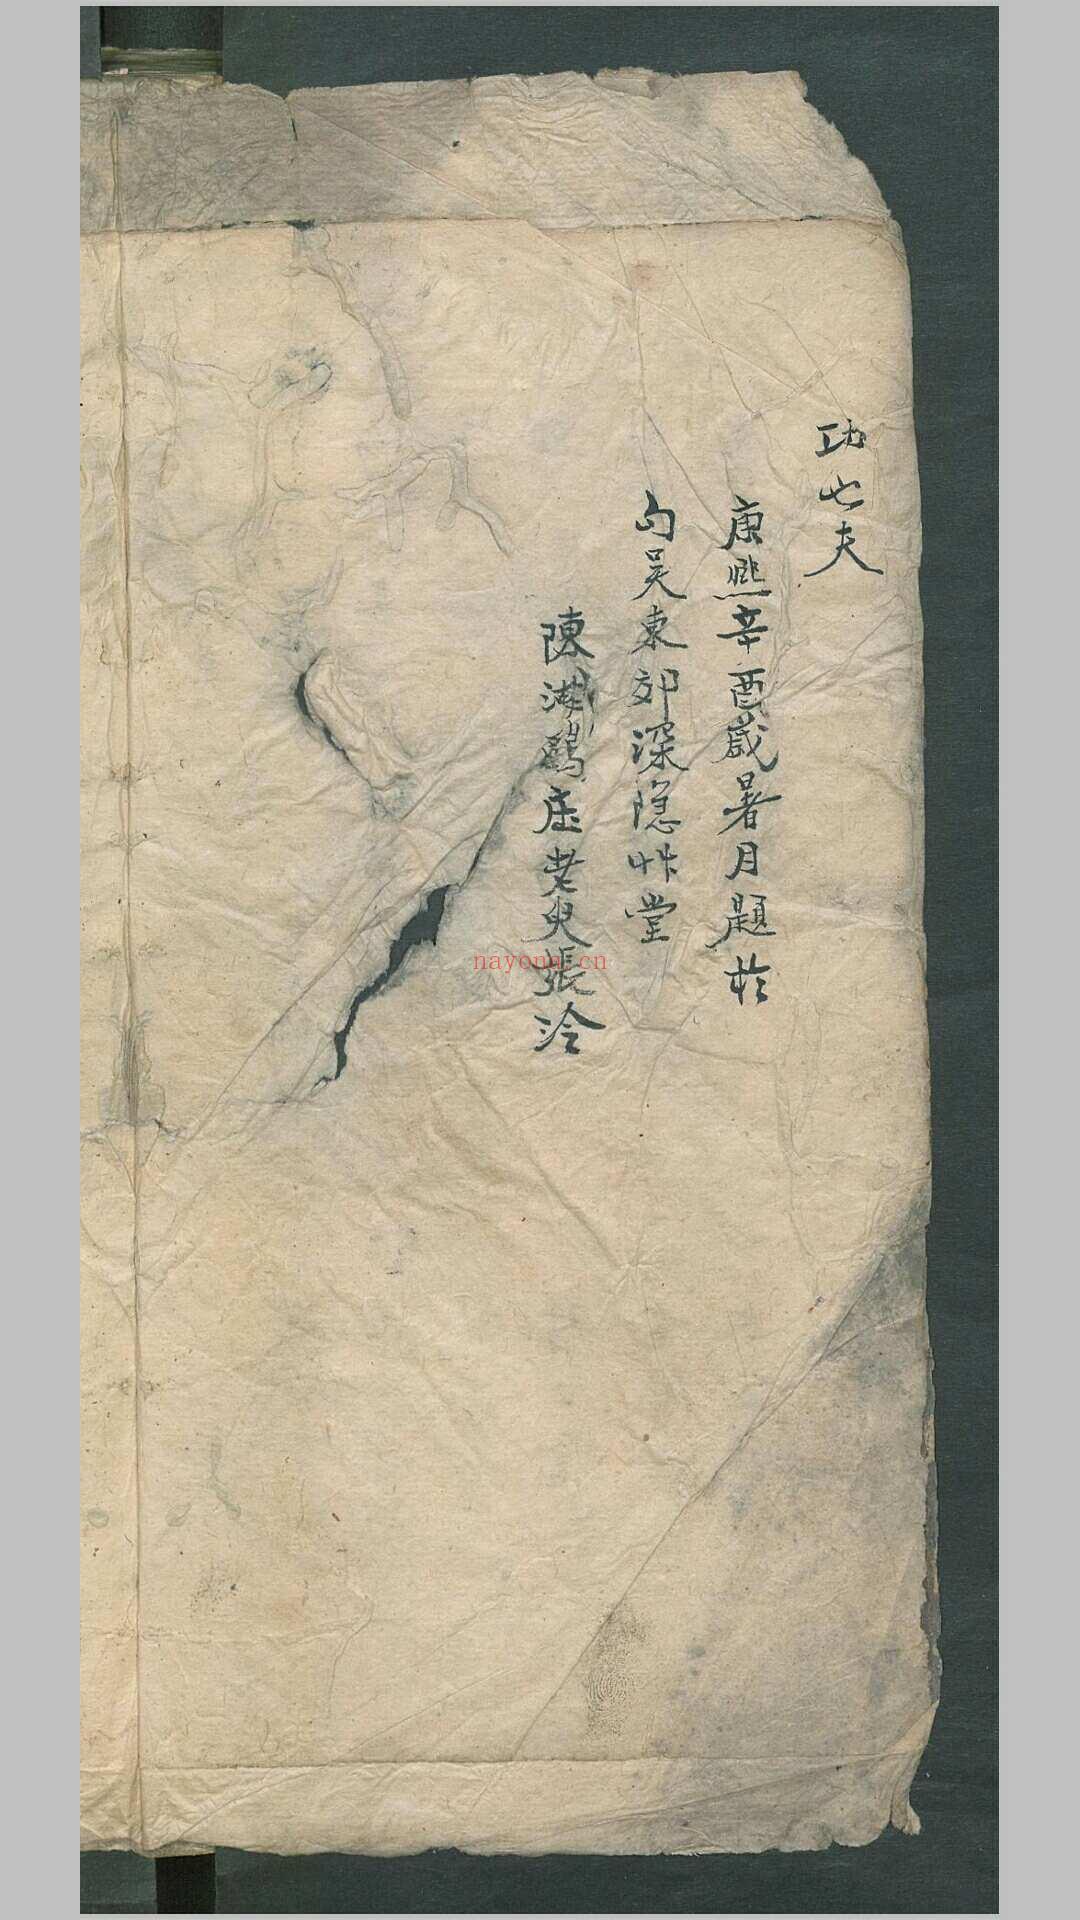 功也夫
康熙辛酉歲暑月題於
句吴東郊深隱艸堂
陳湖鷗庄老叟張泠
nayona.cn